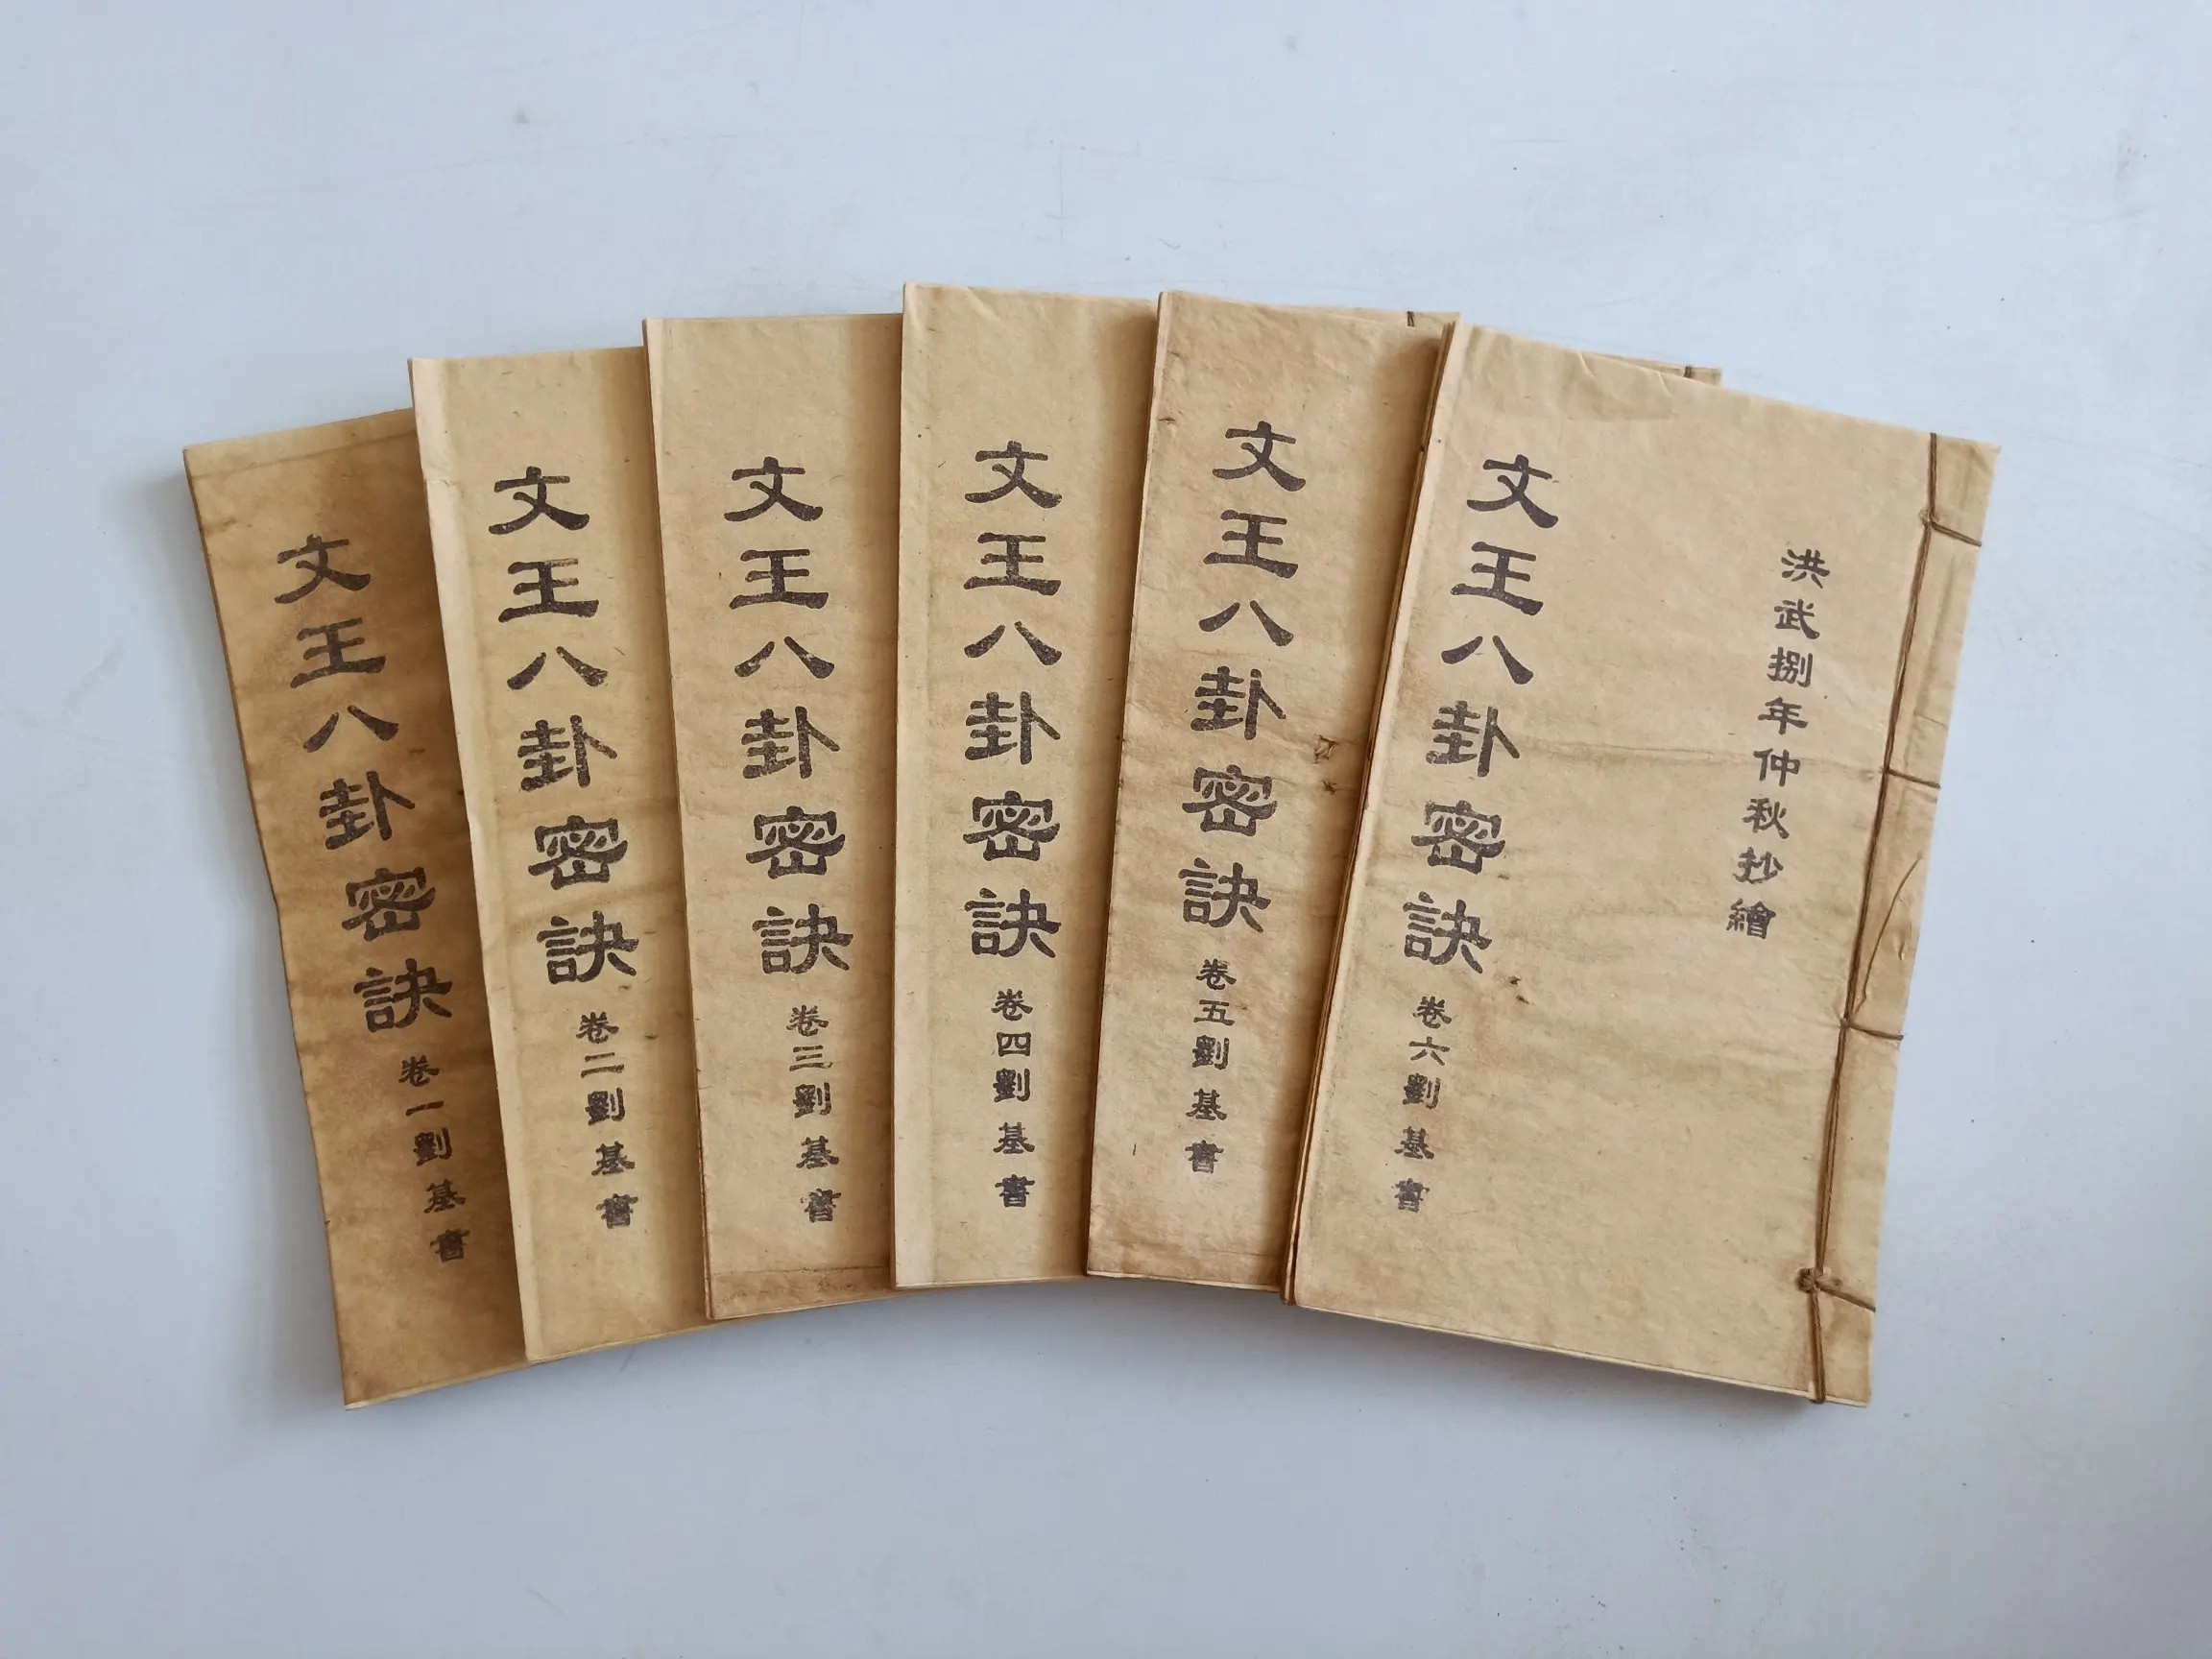 文王八卦密訣 卷一劉基書
文王八卦密訣 卷二劉基書
文王八卦密訣 卷三劉基書
文王八卦密訣 卷四劉基書
文王八卦密訣 卷五劉基書
文王八卦密訣 卷六劉基書
洪武捌年仲秋抄繪